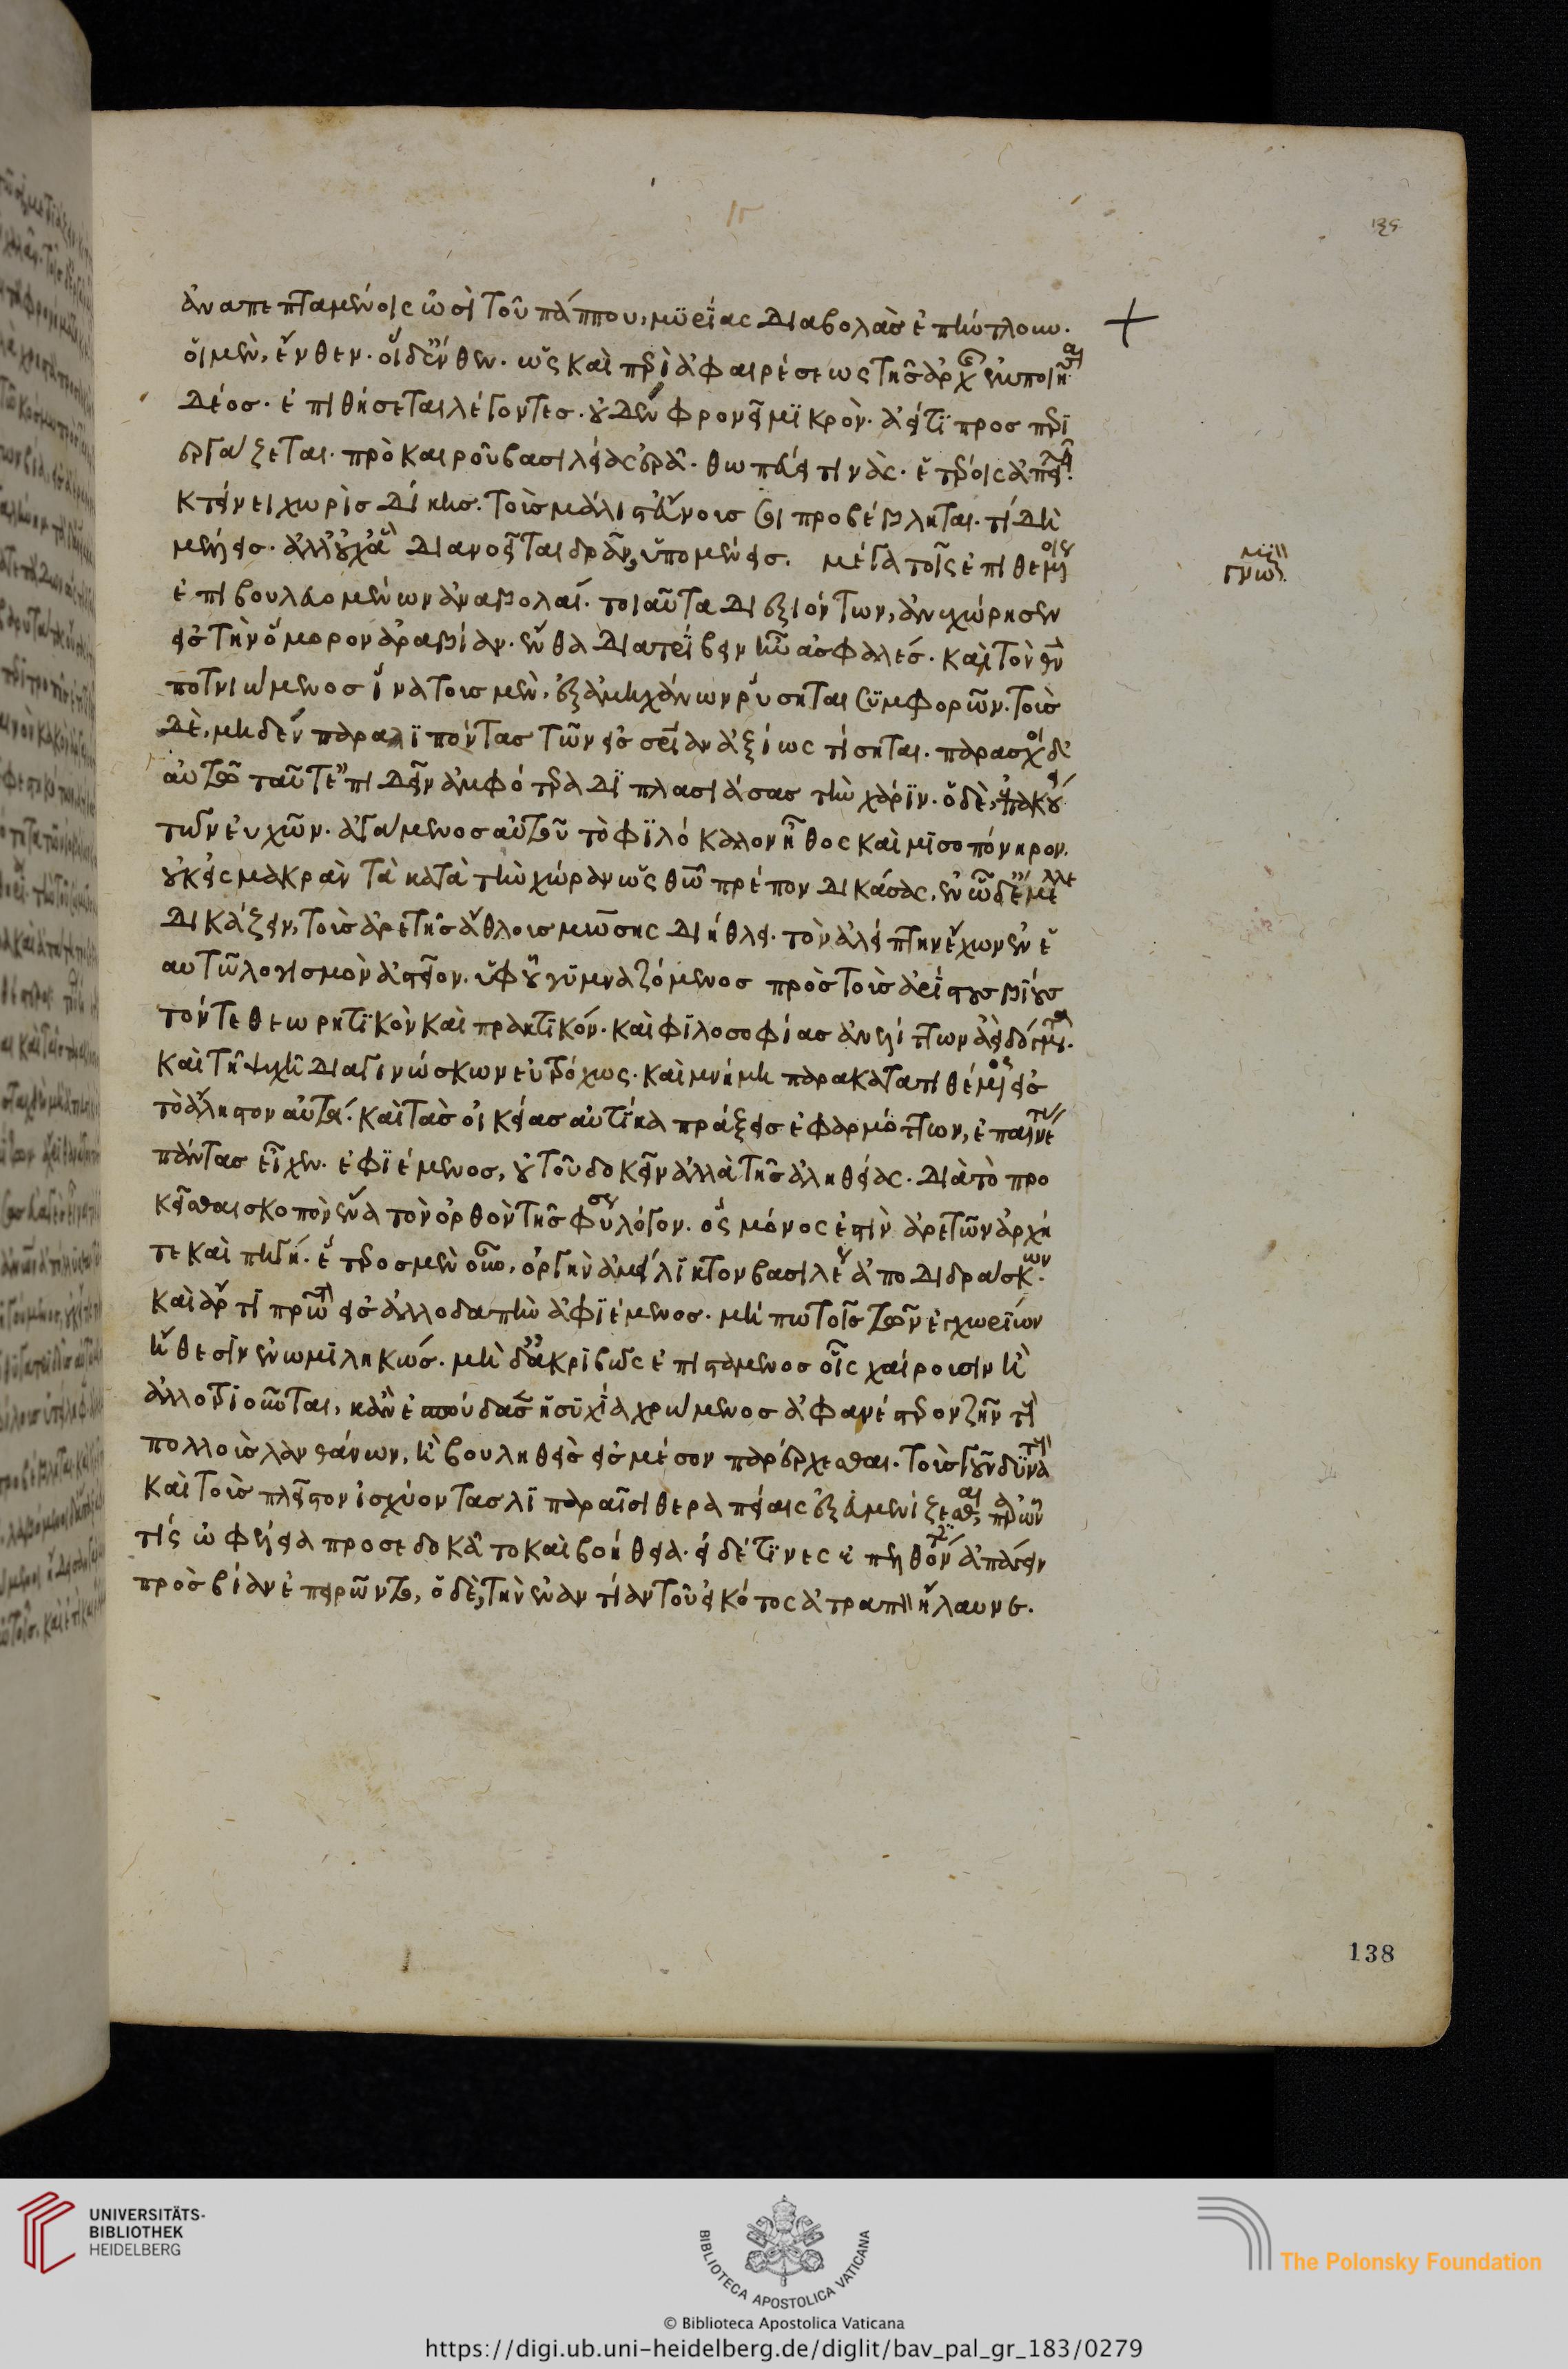 ἀναπεπταμένοις ὠσὶ τοῦ πάππου, μυρίας διαβολὰς ἐπήντλουν.
οἱ μὲν, ἔνθεν. οἱ δ' ἔνθεν. ὡς καὶ περὶ ἀφαιρέσεως τῆς ἀρχῆς ἐμποιῆσαι
δέος. ἐπιθήσεται λέγοντες. οὐδὲν φρονεῖ μικρὸν. ἀεί τι προσπερι
εργάζεται. πρὸ καιροῦ βασιλείας ἐρᾶ. θωπεύει τινὰς. ἑτέροις ἀπειλεῖ.
κτείνει χωρὶς δίκης. τοὺς μάλιστ' εὔνους σοι προβέβληται. τί δὴ
μέλλεις. ἀλλ' οὐχ ἃ διανοεῖται δρᾶν, μέγα τοῖς ἐπιθεμένοις
ἐπιβουλευομένων ἀναβολαί. τοιαῦτα διεξιόντων, ἀνεχώρησεν
εἰς τὴν ὅμορον ἀραβίαν. ἔνθα διατρίβειν ἦν ἀσφαλές. καὶ τὸν θν
ποτνιώμενος ἵνα τοὺς μὲν, ἐξ ἀμηχάνων ῥύσηται συμφορῶν. τοὺς
δὲ, μηδὲν παραλιπόντας τῶν εἰς ἀξίως τίσηται. παράσχοι δὲ
αὐτῶ ταῦτ' ἐπιδεῖν ἀμφότερα διπλασιάσας τὴν χάριν. ὁ δὲ, ἐπακούει
τῶν εὐχῶν. ἀγάμενος αὐτοῦ τὸ φιλόκαλον ἦθος καὶ μισοπόνηρον.
οὐκ εἰς μακρὰν τὰ κατὰ τὴν χώραν ὡς θῶ πρέπον δικάσας. ἐν ὧ δ' ἔμελλε
δικάζειν, τοὺς ἀρετῆς ἄθλους μωσῆς διήθλει. τὸν ἀλείπτην ἔχων ἐν ἑ
αυτῶ λογισμὸν ἀστεῖον. ὑφ' οὗ γυμναζόμενος πρὸς τοὺς ἀρίστους βίους
τόν τε θεωρητικὸν καὶ πρακτικόν. καὶ φιλοσοφίας ἀνελίττων ἀεὶ δόγματα.
καὶ τῆ ψυχῆ διαγινώσκων εὐτρόχως. καὶ μνήμη παρακατατιθέμενος εἰς
τὸ ἄληστον αὐτά. καὶ τὰς οἰκείας αὐτίκα πράξεις ἐφαρμόττων, ἐπαινετὰς
πάντας εἶχεν. ἐφιέμενος, οὐ τοῦ δοκεῖν ἀλλὰ τῆς ἀληθείας. διὰ τὸ προ
κεῖσθαι σκοπὸν ἕνα τὸν ὀρθὸν τῆς φύσεως λόγον. ὃς μόνος ἐστὶν ἀρετῶν ἀρχή
τε καὶ πηγή. ἕτερος μὲν οὖν, ὀργὴν ἀμείλικτον βασιλέως ἀποδιδράσκων.
καὶ ἄρτι πρῶτον εἰς ἀλλοδαπὴν ἀφιγμένος. μήπω τοῖς τῶν ἐγχωρίων
ἤθεσιν ἐνωμιληκώς. μὴ δ' ἀκριβῶς ἐπιστάμενος οἷς χαίρουσιν ἢ
ἀλλοτριοῦνται, κἂν ἐσπούδασεν ἡσυχία χρώμενος ἀφανέστερον ζῆν τοὺς
πολλοὺς λανθάνων, ἢ βουληθεὶς εἰς μέσον παρέρχεσθαι. τοὺς γοῦν δυνατοὺς
καὶ τοὺς πλεῖστον ἰσχύοντας λιπαρέσι θεραπείαις ἐξευμενίζεσθαι, παρ' ὧν
τίς ὠφέλεια προσεδοκᾶτο καὶ βοήθεια. εἰ δέ τινες ἐπελθόντες ἀπάγειν
πρὸς βίαν ἐπειρῶντο, ὁ δὲ, τὴν ἐναντίαν τοῦ εἰκότος ἀτραπὸν ἤλαυνε.
138
UNIVERSITÄTS-
BIBLIOTHEK
HEIDELBERG
BIBLIOTECA APOSTOLICA VATICANA
© Biblioteca Apostolica Vaticana
The Polonsky Foundation
https://digi.ub.uni-heidelberg.de/diglit/bav_pal_gr_183/0279